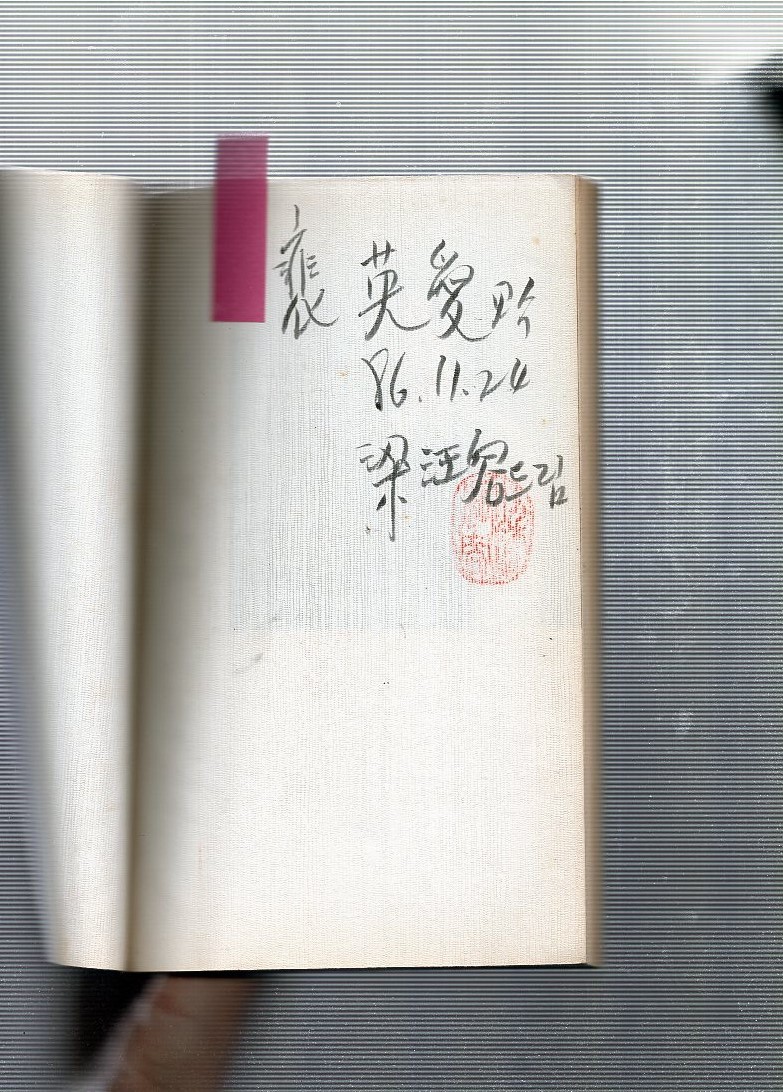 裵 英愛 님
86.11.24
梁汪容드림